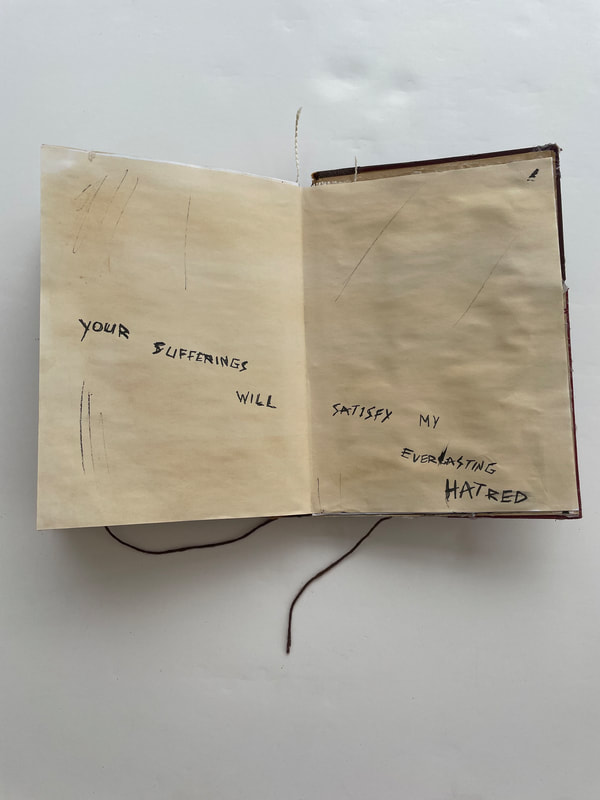 YOUR
SUFFERINGS
WILL
SATISFY MY
EVERLASTING
HATRED